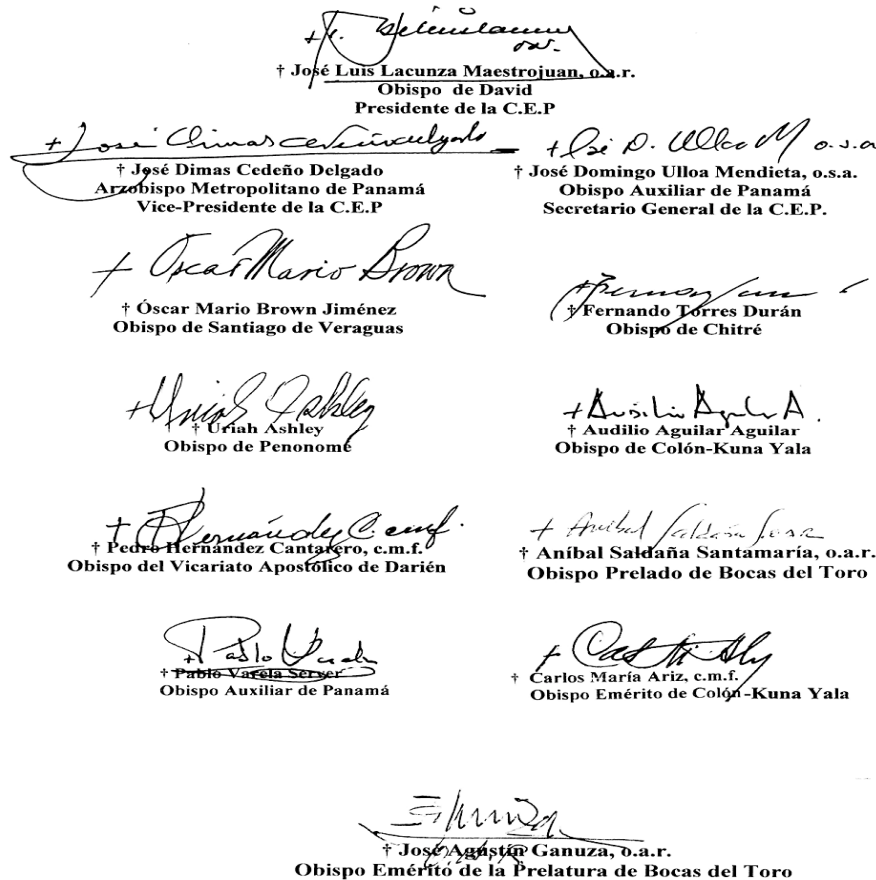 † José Luis Lacunza Maestrojuan, o.a.r.
Obispo de David
Presidente de la C.E.P
+ José Dimas Cedeño Delgado
+ José D. Ulloa M o.s.a
† José Dimas Cedeño Delgado
Arzobispo Metropolitano de Panamá
Vice-Presidente de la C.E.P
† José Domingo Ulloa Mendieta, o.s.a.
Obispo Auxiliar de Panamá
Secretario General de la C.E.P.
+ Óscar Mario Brown
† Óscar Mario Brown Jiménez
Obispo de Santiago de Veraguas
† Fernando Torres Durán
Obispo de Chitré
+ Uriah Ashley
† Uriah Ashley
Obispo de Penonomé
† Audilio Aguilar Aguilar
Obispo de Colón-Kuna Yala
+ P Hernández C. cmf.
† Pedro Hernández Cantarero, c.m.f.
Obispo del Vicariato Apostólico de Darién
+ Aníbal Saldaña
† Aníbal Saldaña Santamaría, o.a.r.
Obispo Prelado de Bocas del Toro
+ Pablo Varela
† Pablo Varela Server
Obispo Auxiliar de Panamá
† Carlos María Ariz, c.m.f.
Obispo Emérito de Colón-Kuna Yala
† José Agustín Ganuza, o.a.r.
Obispo Emérito de la Prelatura de Bocas del Toro